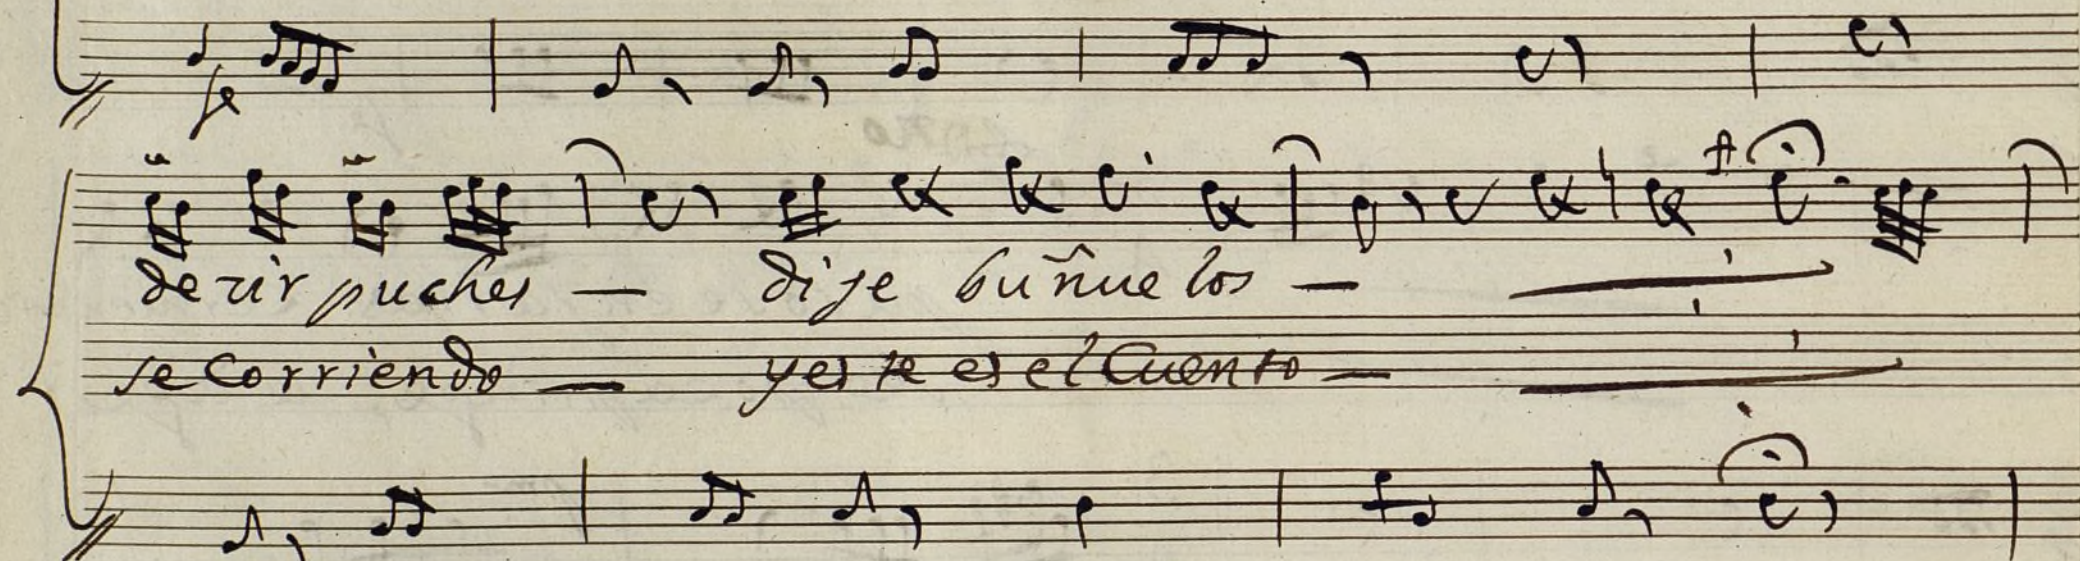 fe
dezir puches — dije buñuelos —
se Corriendo — y este es el Cuento —